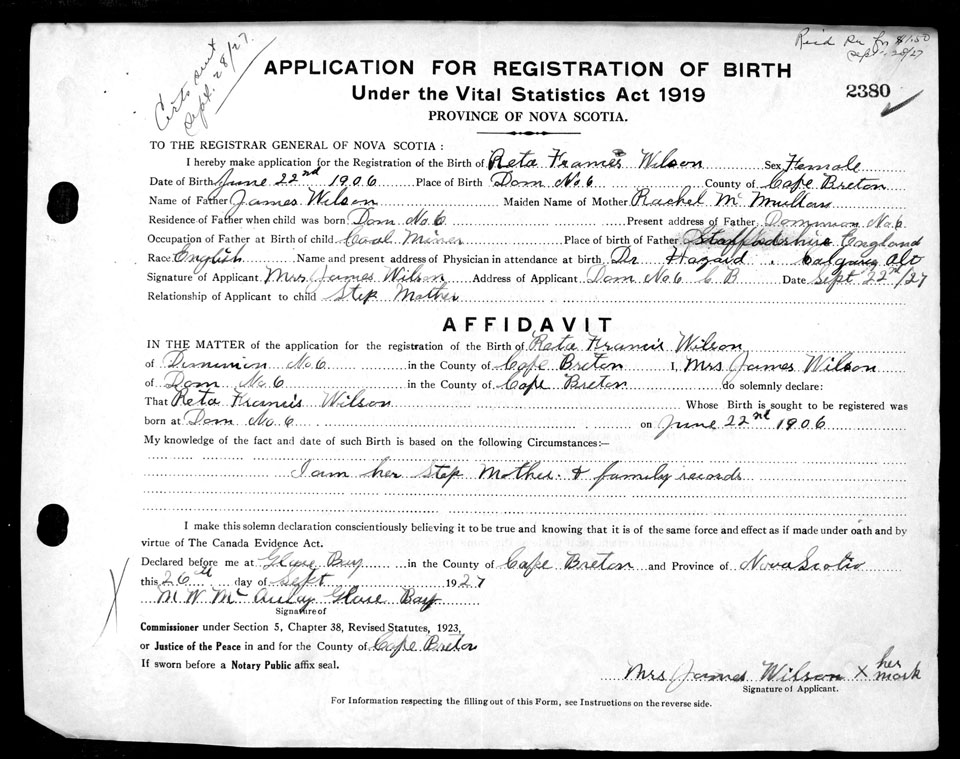 Certs sent
Sept. 28/27.
Rec'd for $1.50
Sept. 28/27
APPLICATION FOR REGISTRATION OF BIRTH
Under the Vital Statistics Act 1919
2380
PROVINCE OF NOVA SCOTIA.
TO THE REGISTRAR GENERAL OF NOVA SCOTIA :
I hereby make application for the Registration of the Birth of Reta Francis Wilson Sex Female
Date of Birth June 22nd 1906 Place of Birth Dom No. 6 County of Cape Breton
Name of Father James Wilson Maiden Name of Mother Rachel Mc Mullan
Residence of Father when child was born Dom No. 6 Present address of Father Dominion No. 6
Occupation of Father at Birth of child Coal Miner Place of birth of Father Staffordshire England
Race English Name and present address of Physician in attendance at birth Dr Hazard Calgary Alt
Signature of Applicant Mrs James Wilson Address of Applicant Dom No 6 C B Date Sept 22nd/27
Relationship of Applicant to child Step Mother
AFFIDAVIT
IN THE MATTER of the application for the registration of the Birth of Reta Francis Wilson
of Dominion No. 6 in the County of Cape Breton I, Mrs James Wilson
of Dom No. 6 in the County of Cape Breton do solemnly declare:
That Reta Francis Wilson Whose Birth is sought to be registered was
born at Dom No. 6 on June 22nd 1906
My knowledge of the fact and date of such Birth is based on the following Circumstances:—
I am her Step Mother & family records
I make this solemn declaration conscientiously believing it to be true and knowing that it is of the same force and effect as if made under oath and by
virtue of The Canada Evidence Act.
Declared before me at Glace Bay in the County of Cape Breton and Province of Nova Scotia
this 26th day of Sept 1927
M W Mc Aulay Glace Bay
Signature of
Commissioner under Section 5, Chapter 38, Revised Statutes, 1923,
or Justice of the Peace in and for the County of Cape Breton
If sworn before a Notary Public affix seal.
Mrs James Wilson X her mark
Signature of Applicant.
For Information respecting the filling out of this Form, see Instructions on the reverse side.